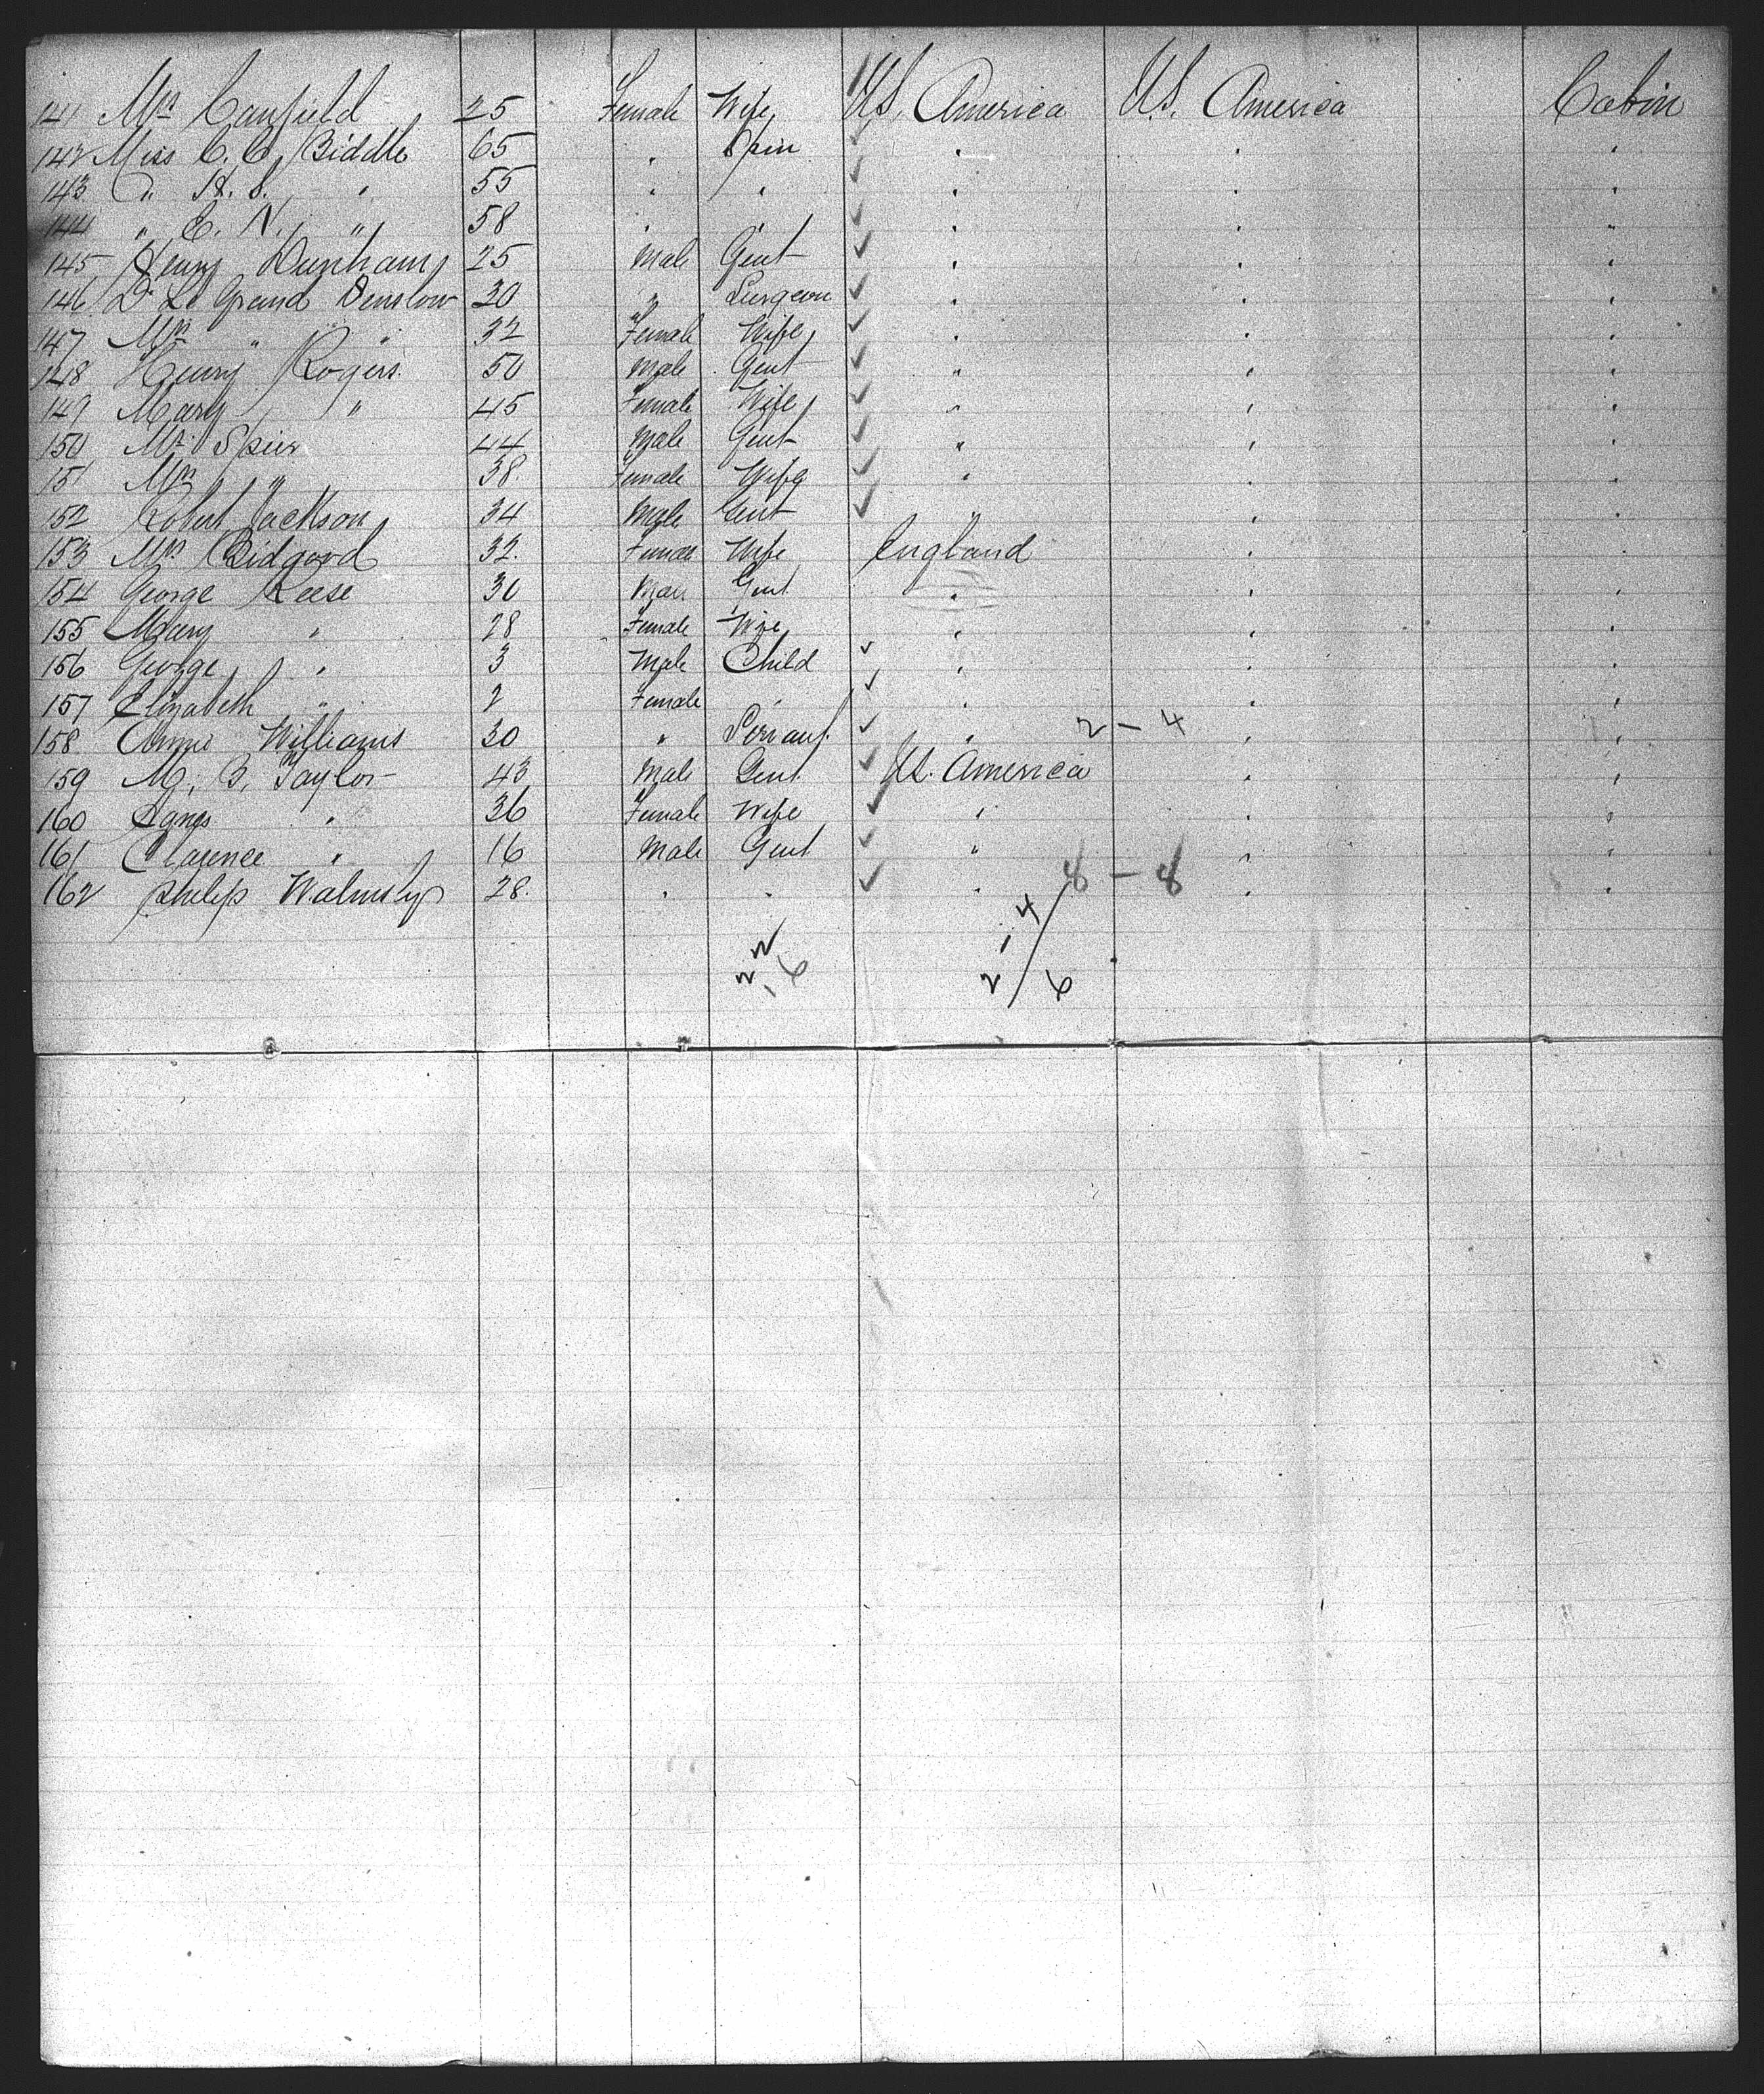 141 Mrs Canfield 25 Female Wife U.S. America U.S. America Cabin
142 Miss C. C. Biddle 65 " Spin " " "
143 " H. S. " 55 " " " " "
144 " C. N. " 58 " " " " "
145 Henry Dunham 25 Male Gent " " "
146 Dr Le Grand Denslow 30 " Surgeon " " "
147 Mrs " " 32 Female Wife " " "
148 Henry Rogers 50 Male Gent " " "
149 Mary " 45 Female Wife " " "
150 Mr Spier 44 Male Gent " " "
151 Mrs " 38. Female Wife " " "
152 Robert Jackson 34 Male Gent " " "
153 Mrs Bidgood 32. Female Wife England " "
154 George Reese 30 Male Gent " " "
155 Mary " 28 Female Wife " " "
156 George " 3 Male Child " " "
157 Elizabeth " 2 Female " " " "
158 Annie Williams 30 " Servant " 2 – 4 " "
159 M. B. Taylor 43 Male Gent. U.S. America " "
160 Agnes " 36 Female Wife " " "
161 Clarence " 16 Male Gent " " "
162 Philip Walmsly 28. " " " 8 – 8 " "
4
2 / 6